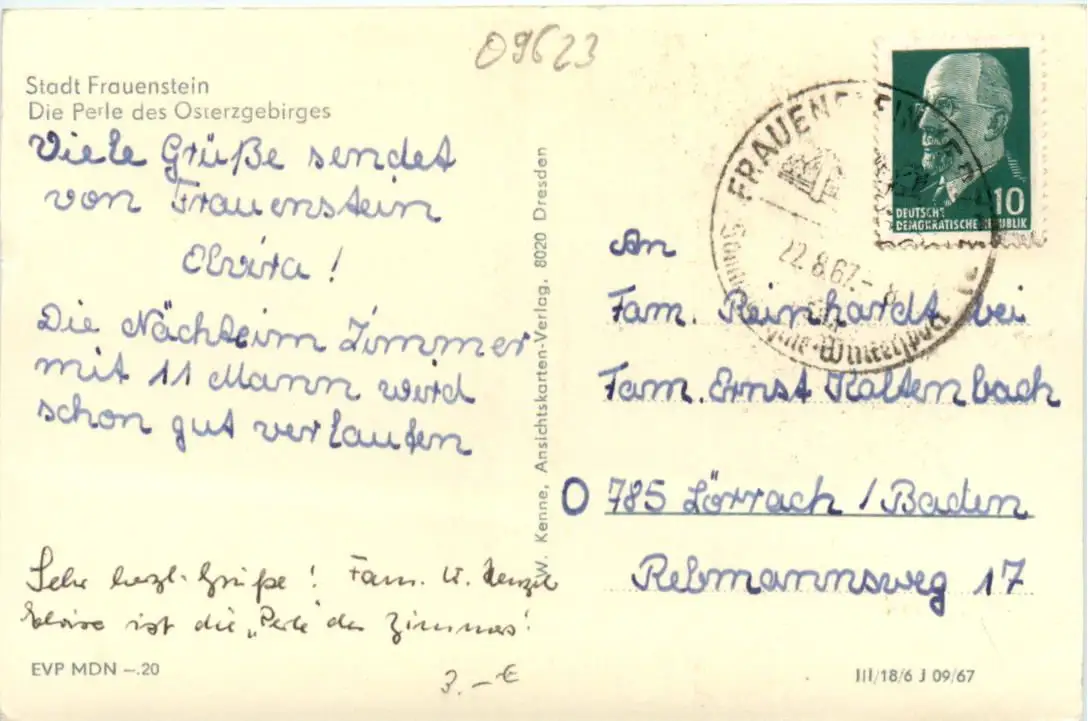 09623
Stadt Frauenstein
Die Perle des Osterzgebirges
Viele Grüße sendet
von Frauenstein
Elvira !
Die Nächte im Zimmer
mit 11 Mann wird
schon gut verlaufen
Sehr herzl. Grüße ! Fam. W.
ist die „Perle" des Zimmers!
EVP MDN –.20
3.– €
W. Kenne, Ansichtskarten-Verlag, 8020 Dresden
FRAUENSTEIN
22.8.67.- 8
Wintersport
10
DEUTSCHE
DEMOKRATISCHE REPUBLIK
An
Fam. Reinhardt bei
Fam. Ernst Kaltenbach
O 785 Lörrach / Baden
Rebmannsweg 17
III/18/6 J 09/67